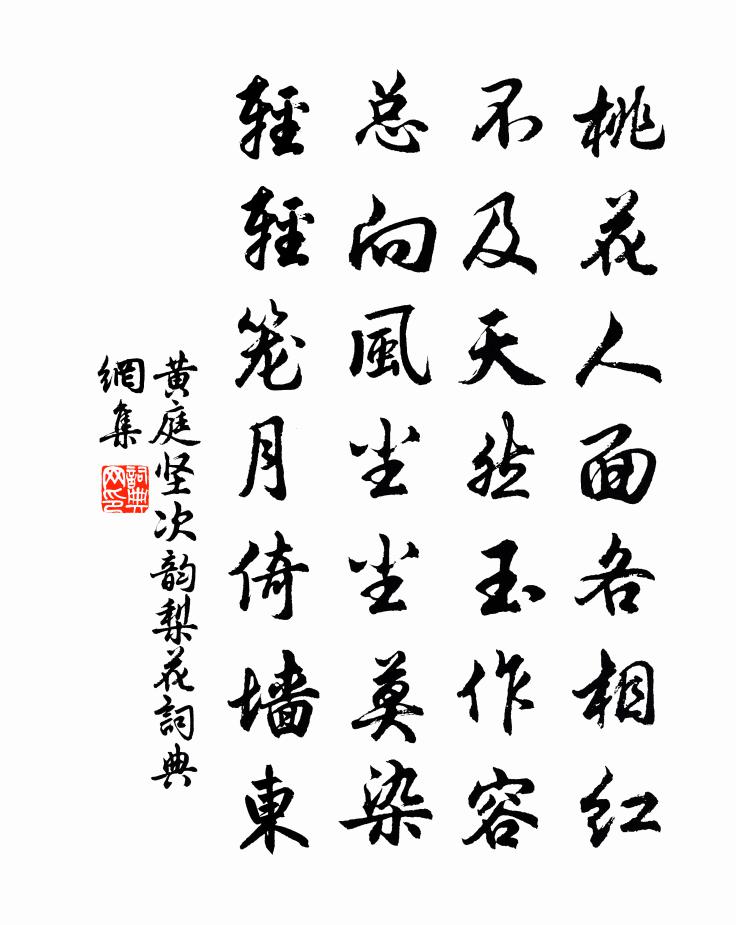 桃花人面各相红
不及天然玉作容
总向風尘尘莫染
輕輕笼月倚墙東
黄庭坚次韵梨花詞典
網集
詞典
网印